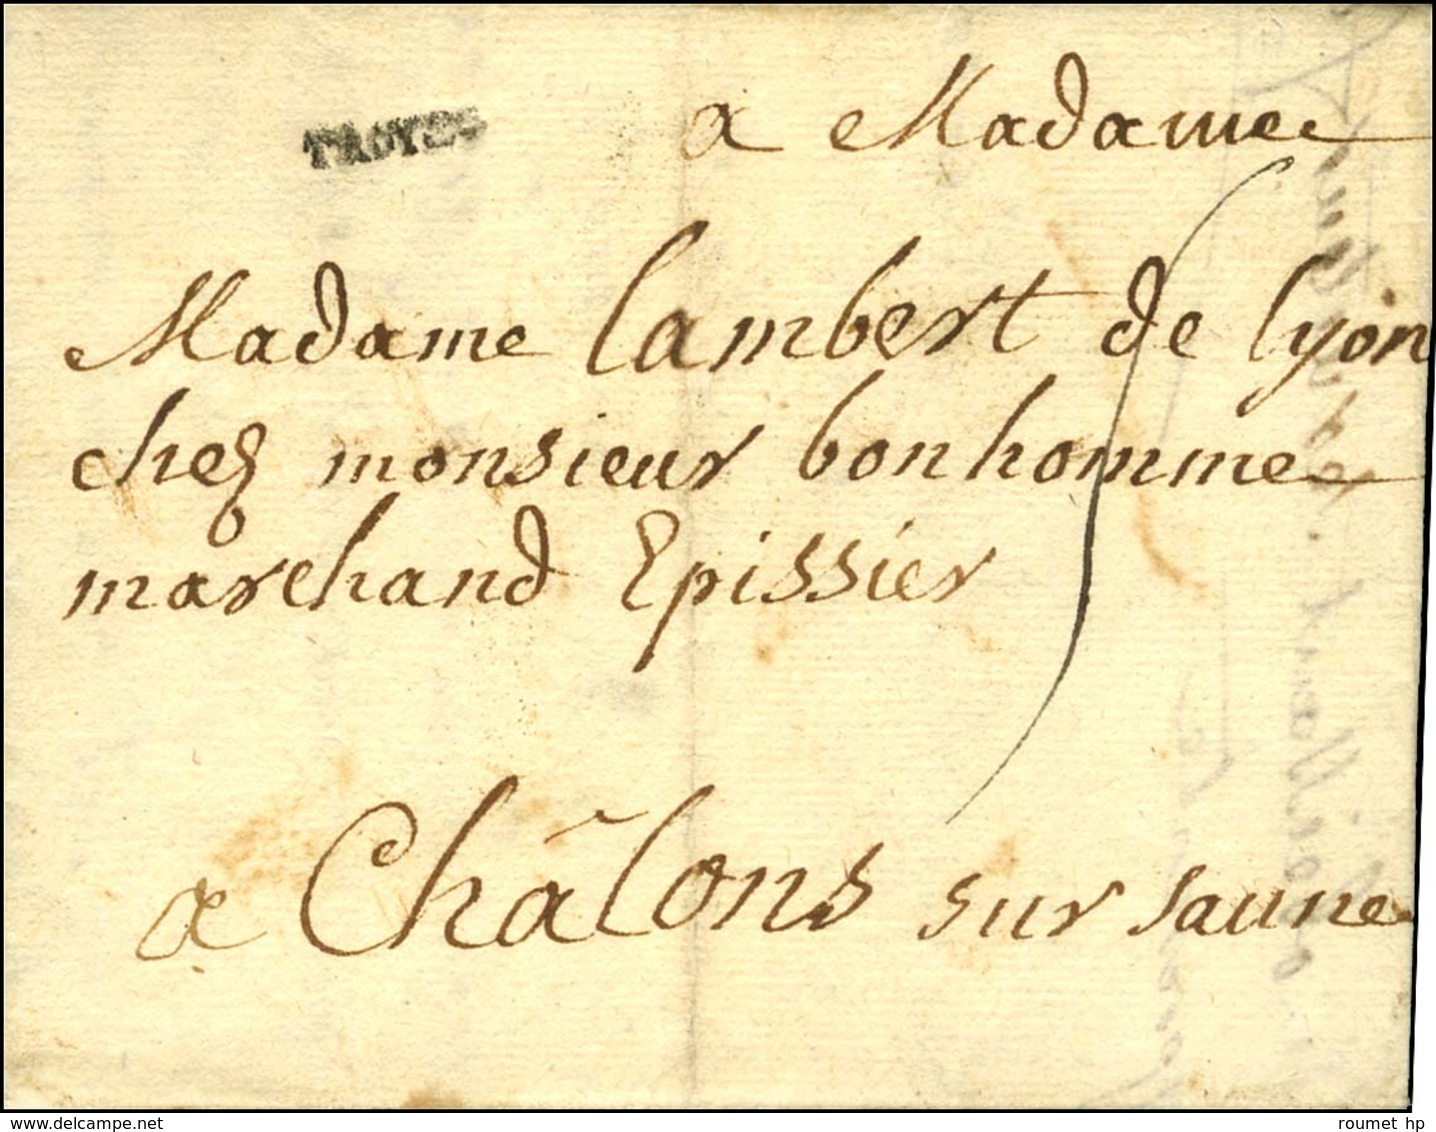 TROYES
a Madame
Madame Lambert de Lyon
chez monsieur bonhomme
marchand Epissier
a Châlons sur saune
delcampe.net
roumet hp